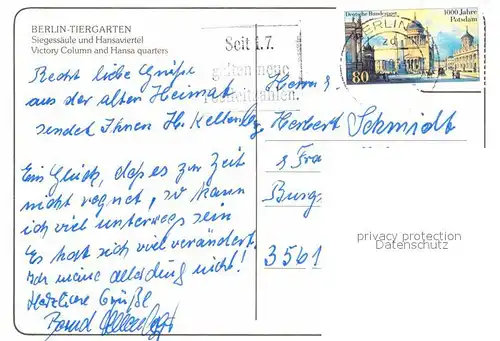 BERLIN-TIERGARTEN
Siegessäule und Hansaviertel
Victory Column and Hansa quarters
Recht liebe Grüße
aus der alten Heimat
sendet Ihnen H. Kellenbg.
Ein Glück, daß es zur Zeit
nicht regnet, so kann
ich viel unterwegs sein
Es hat sich viel verändert.
Ich meine allerding nicht!
Herzliche Grüße
Bernd
Seit 1.7.
gelten neue
Postleitzahlen.
BERLIN
Deutsche Bundespost
1000 Jahre
Potsdam
80
Herrn &
Herbert Schmidt
& Fra
Burg
3561
privacy protection
Datenschutz